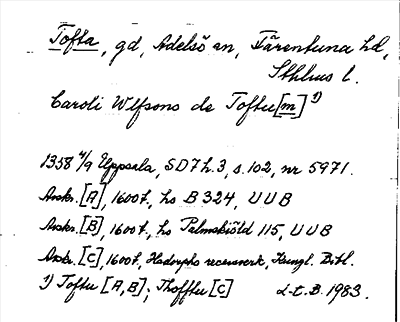 Tofta, gd, Adelsö sn, Färentuna hd,
Sthlms l.
Caroli Wlfsons de Toftu[m] 1)
1358 4/9 Uppsala, SD7 h.3, s.102, nr 5971.
Avskr. [A], 1600t, hs B 324, UUB
Avskr. [B], 1600t, hs Palmskiöld 115, UUB
Avskr. [C], 1600t, Hadorphs recueverk, Kungl. Bibl.
1) Toftu [A, B]; Thofftu [C] L-t. B. 1983.